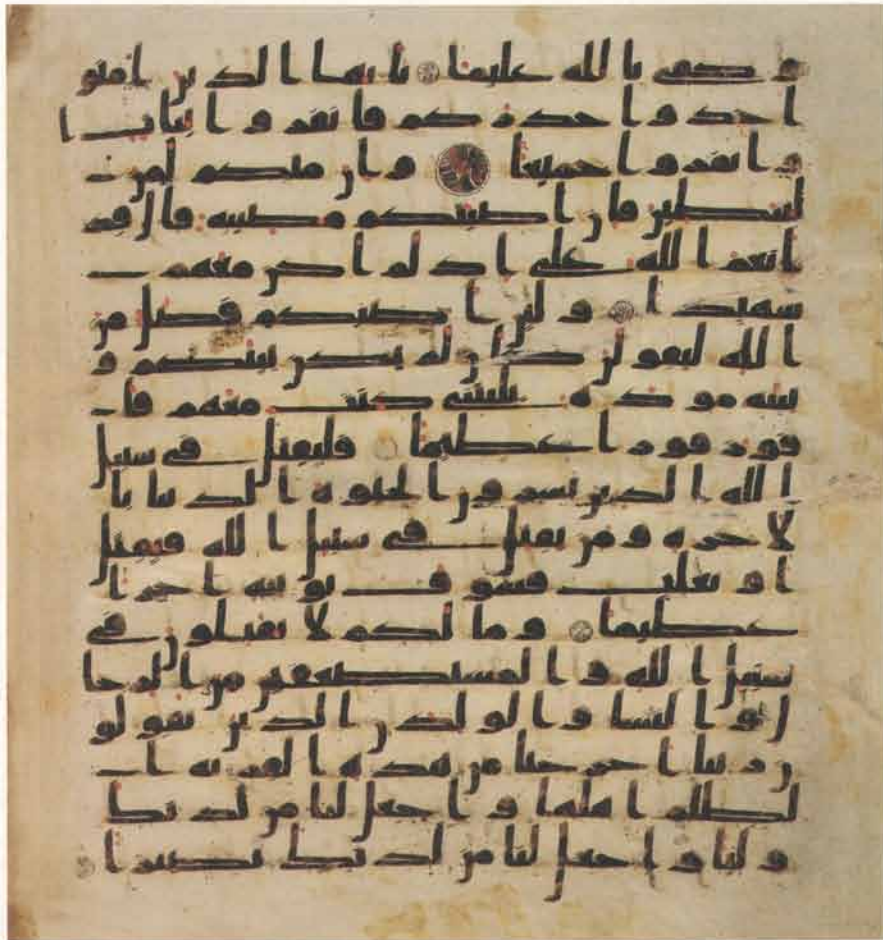 و كفى بالله عليما يايها الذين امنو
ا خذوا حذركم فانفروا ثبات ا
و انفروا جميعا و ان منكم لمن
ليبطين فان اصبتكم مصيبه قال قد
انعم الله علي اذ لم اكن معهم
شهيدا و لين اصبكم فضل من
الله ليقولن كان لم يكن بينكم و
بينه موده يليتني كنت معهم فا
فوز فوزا عظيما فليقتل في سبيل
الله الذين يشرون الحيوه الدنيا با
لاخره و من يقتل في سبيل الله فيقتل
او يغلب فسوف نوتيه اجرا
عظيما و ما لكم لا تقتلون في
سبيل الله و المستضعفين من الرجا
ل و النسا و الولدن الذين يقولو
ن ربنا اخرجنا من هذه القريه ا
لظلم اهلها و اجعل لنا من لدنك
وليا و اجعل لنا من لدنك نصيرا